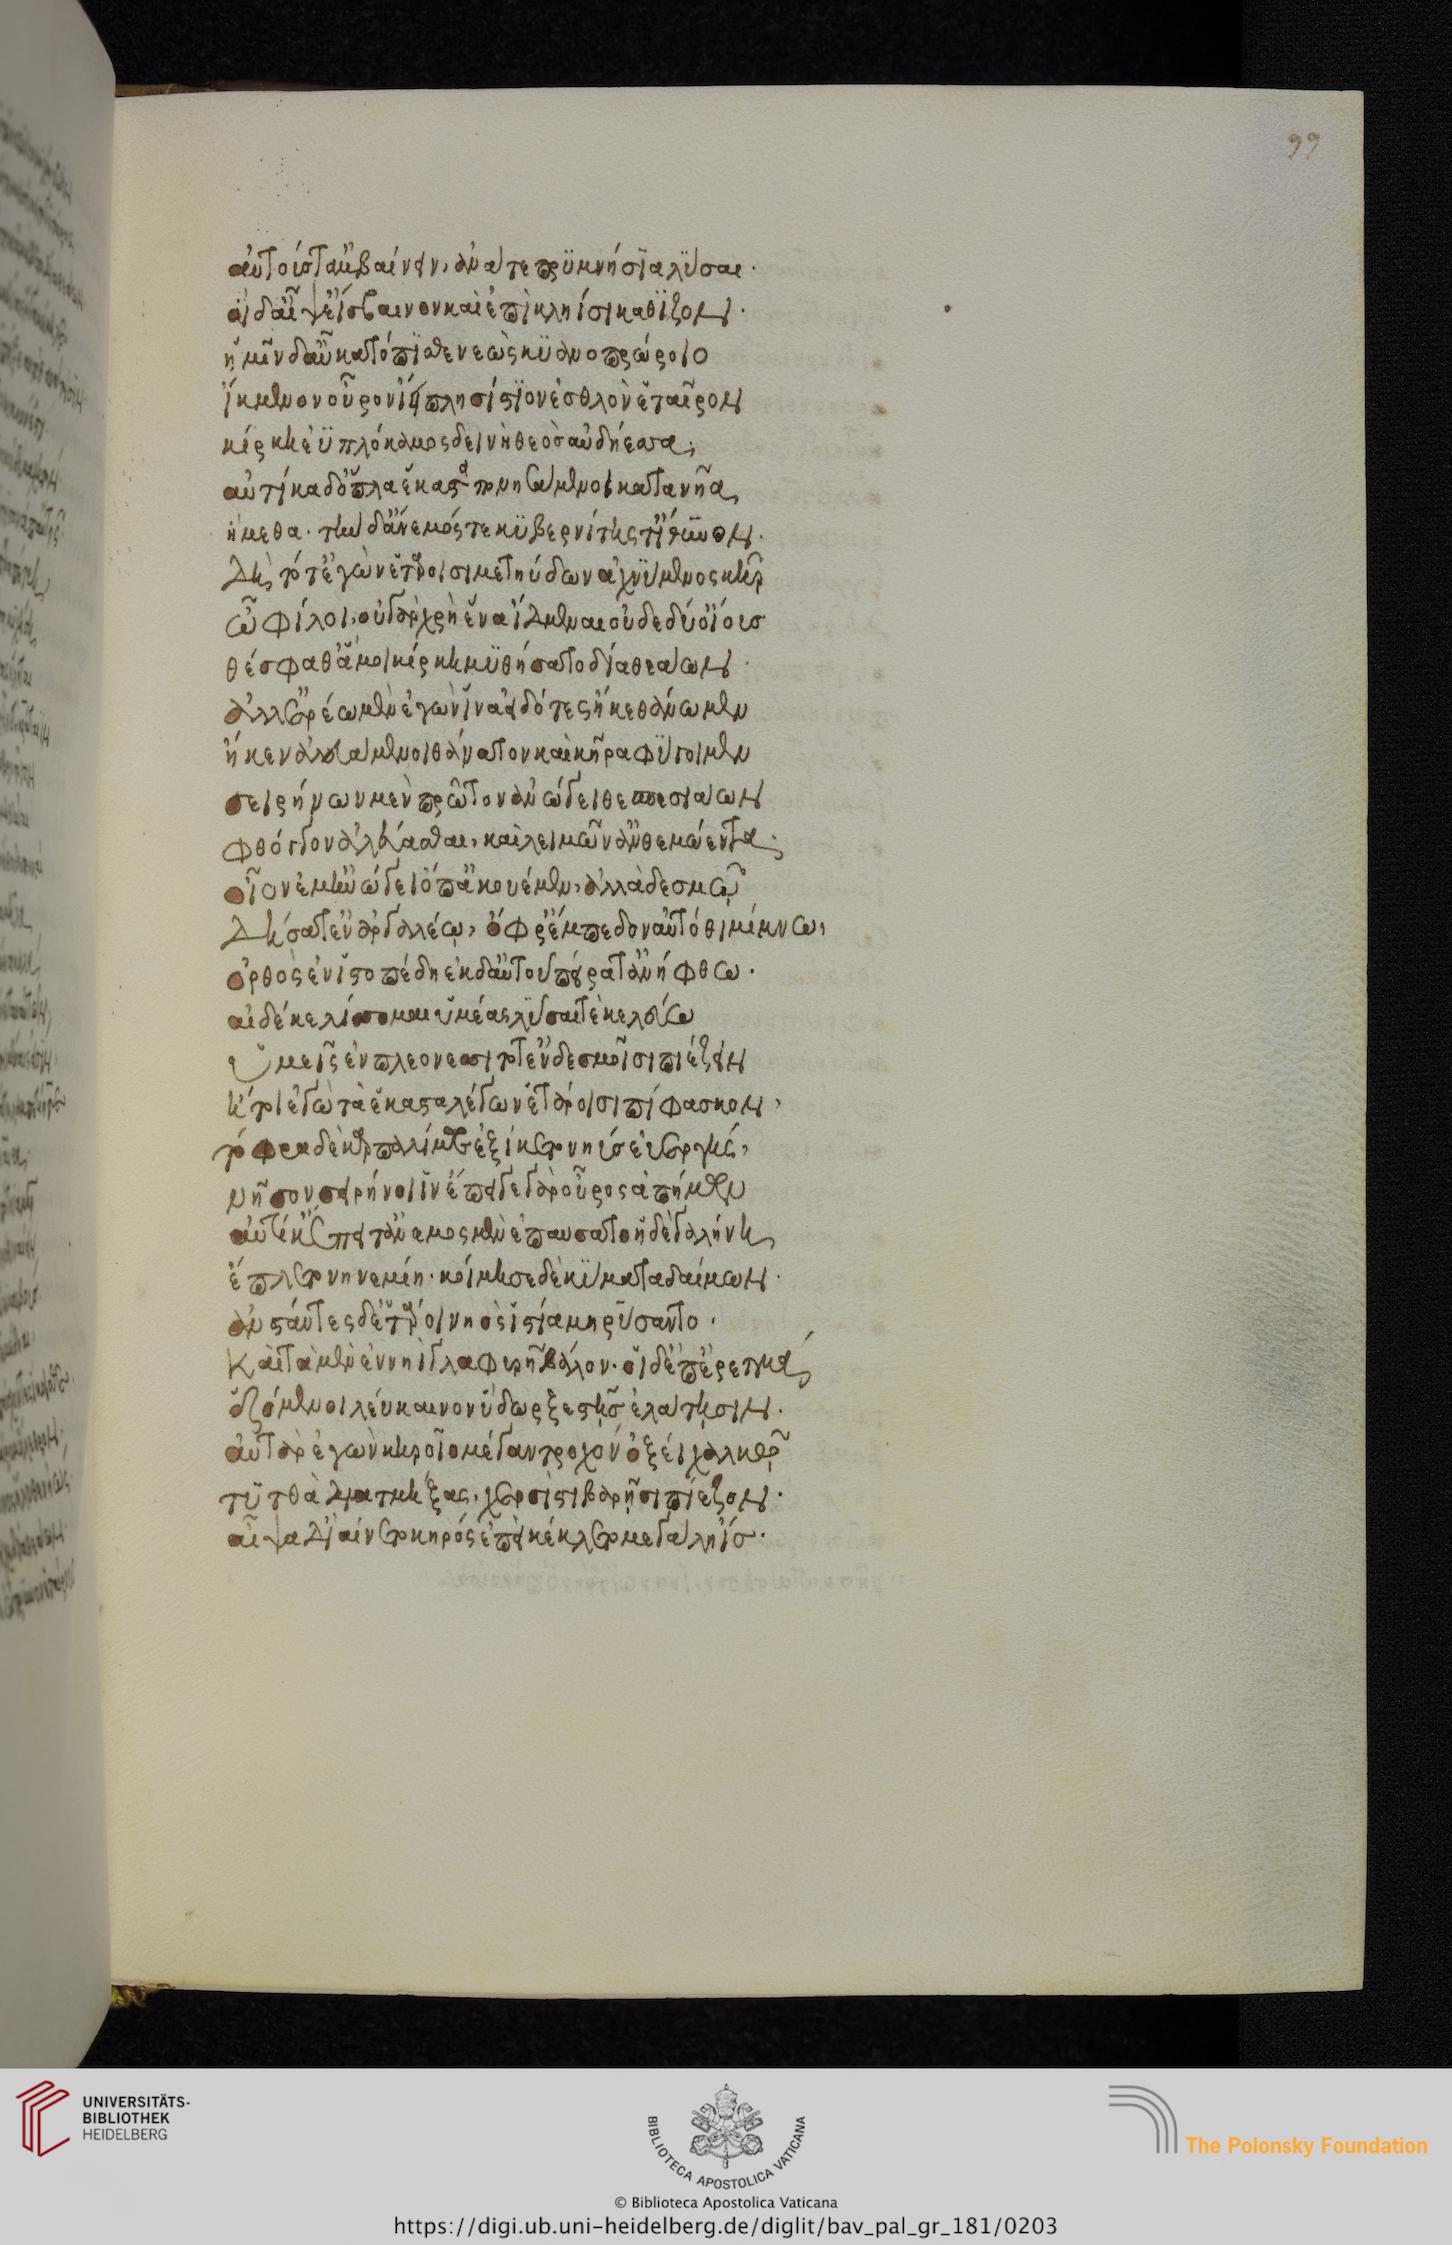 99
αὐτούς τ' ἀμβαίνειν, ἀνά τε πρυμνήσια λῦσαι.
οἱ δ' αἶψ' εἴσβαινον καὶ ἐπὶ κληῗσι καθῖζον.
ἡμῖν δ' αὖ κατόπισθε νεὼς κυανοπρώροιο
ἴκμενον οὖρον ἵει πλησίστιον ἐσθλὸν ἑταῖρον
κίρκη ἐϋπλόκαμος δεινὴ θεὸς αὐδήεσσα,
αὐτίκα δ' ὅπλα ἕκαστα πονησάμενοι κατὰ νῆα
ἥμεθα. τὴν δ' ἄνεμός τε κυβερνήτης τ' ἴθυνον.
δὴ τότ' ἐγὼν ἑτάροισι μετηύδων ἀχνύμενος κῆρ
ὦ φίλοι, οὐ γὰρ χρὴ ἕνα ἴδμεναι οὐδὲ δύ' οἴους
θέσφαθ' ἅ μοι κίρκη μυθήσατο δῖα θεάων.
ἀλλ' ἐρέω μὲν ἐγὼν ἵνα εἰδότες ἤ κε θάνωμεν
ἤ κεν ἀλευάμενοι θάνατον καὶ κῆρα φύγοιμεν
σειρήνων μὲν πρῶτον ἀνώγει θεσπεσιάων
φθόγγον ἀλεύασθαι, καὶ λειμῶν' ἀνθεμόεντα.
οἶον ἔμ' ἠνώγει ὄπ' ἀκουέμεν, ἀλλὰ δεσμῷ
δήσατ' ἐν ἀργαλέῳ, ὄφρ' ἔμπεδον αὐτόθι μίμνω,
ὀρθὸς ἐν ἱστοπέδῃ ἐκ δ' αὐτοῦ πείρατ' ἀνήφθω.
αἰ δέ κε λίσσομαι ὑμέας λῦσαί τε κελεύω
ὑμεῖς ἐν πλεόνεσσι τότ' ἐν δεσμοῖσι πιέζειν
ἤτοι ἐγὼ τὰ ἕκαστα λέγων ἑτάροισι πίφασκον,
τόφρα δὲ καρπαλίμως ἐξίκετο νηῦς εὐεργής,
νῆσον σειρήνοιϊν ἔπειγε γὰρ οὖρος ἀπήμων
αὐτίκ' ἔπειτ' ἄνεμος μὲν ἐπαύσατο ἠδὲ γαλήνη
ἔπλετο νηνεμίη. κοίμησε δὲ κύματα δαίμων.
ἀνστάντες δ' ἕταροι νηὸς ἱστία μηρύσαντο.
καὶ τὰ μὲν ἐν νηῒ γλαφυρῇ βάλον. οἱ δ' ἐπ' ἐρετμά
ἑζόμενοι λεύκαινον ὕδωρ ξεστῇς ἐλάτῃσιν.
αὐτὰρ ἐγὼν κηροῖο μέγαν τροχὸν ὀξέϊ χαλκῷ
τυτθὰ διατμήξας, χερσὶ στιβαρῇσι πίεζον.
αἶψα δ' ἰαίνετο κηρός ἐπεὶ κέκλετο μεγάλη ἴς.
UNIVERSITÄTS-
BIBLIOTHEK
HEIDELBERG
BIBLIOTECA APOSTOLICA VATICANA
The Polonsky Foundation
© Biblioteca Apostolica Vaticana
https://digi.ub.uni-heidelberg.de/diglit/bav_pal_gr_181/0203